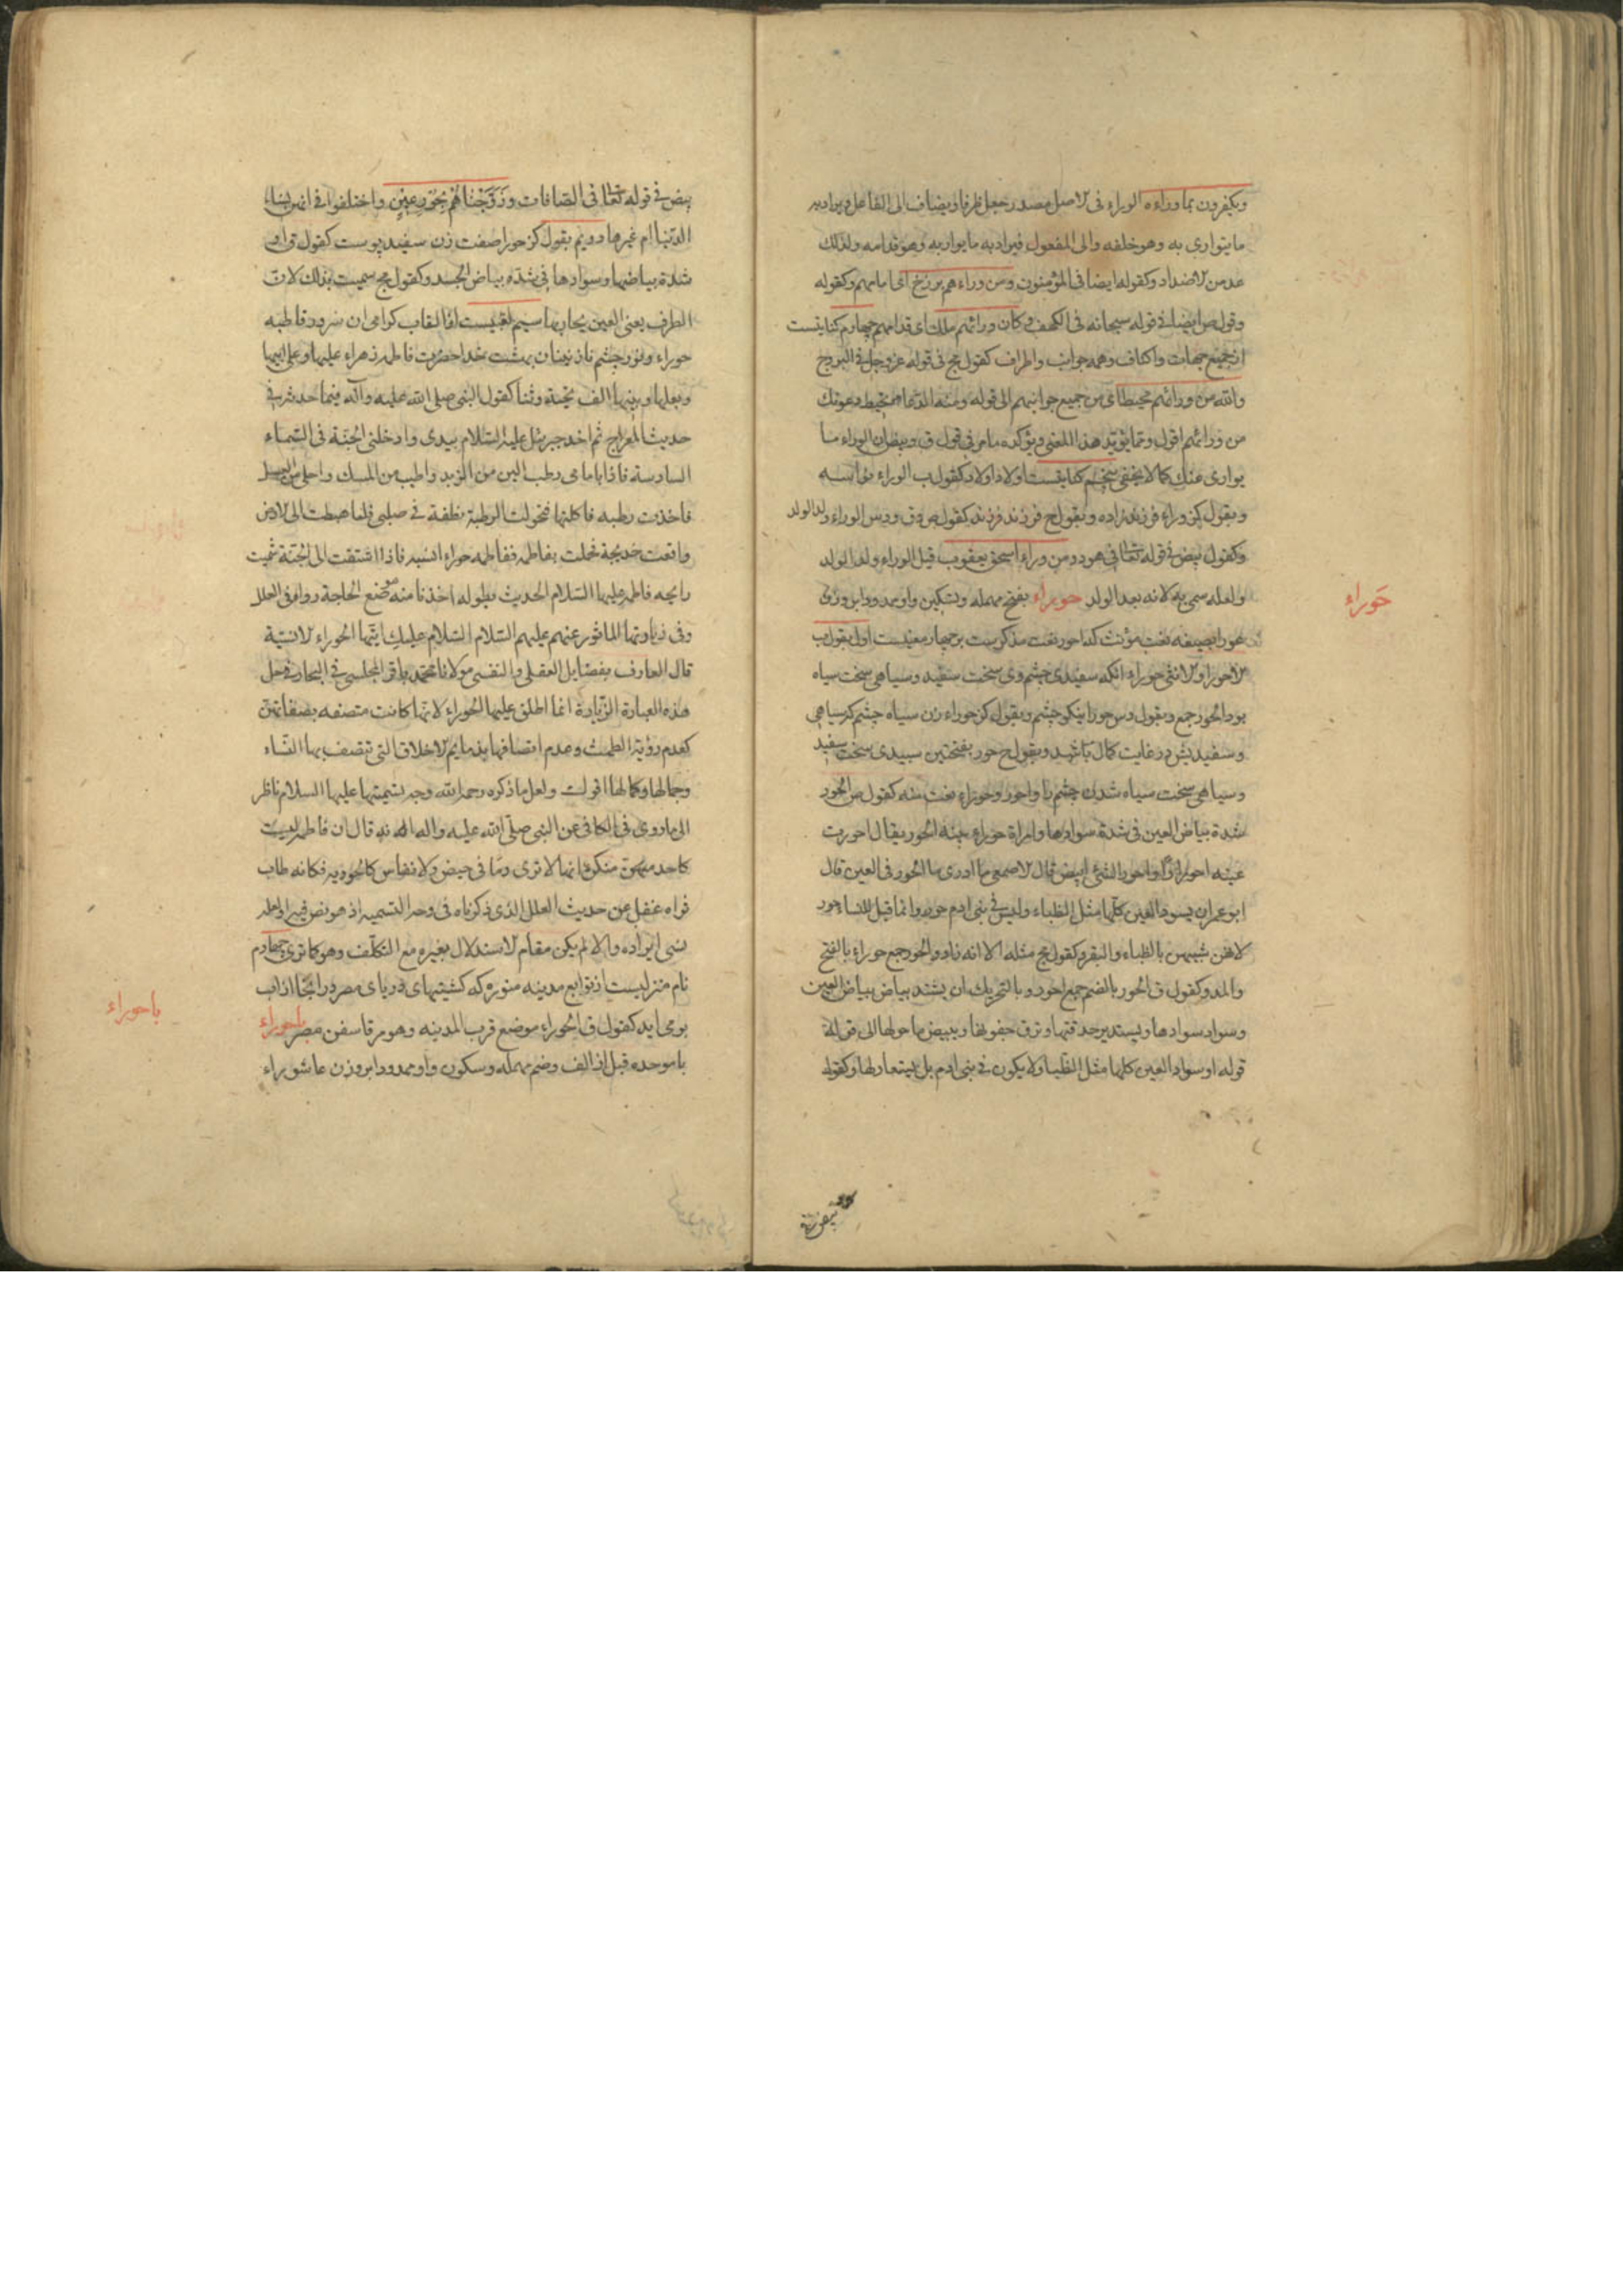 ويكفرون بما وراءه الوراء فى الاصل مصدر جعل ظرفا ويضاف الى الفاعل فيراد به
ما يتوارى به وهو خلفه والى المفعول فيراد به ما يواريه وهو قدامه ولذلك
عد من الاضداد وكقوله ايضا فى المؤمنون ومن وراءهم برزخ اى امامهم وكقوله
وقول ص ايضا فى قوله سبحانه فى الكهف وكان ورائهم ملك اى قدامهم چهارم كنايتست
از جميع جهات واكناف وهمه جوانب واطراف كقول مج فى قوله عز وجل فى البروج
والله من ورائهم محيط اى من جميع جوانبهم الى قوله ومنه الدعا محيط دعوتك
من ورائهم اقول ومما يؤيد هذا المعنى ويؤكده ما مر فى قول ق وبيض ان الوراء ما
يوارى عنك كما لا يخفى پنجم كنايتست اولاد اولاد كقول ب الوراء نواسه
وبقول كز وراء فرزند زاده وبقول ح فرزند فرزند كقول ص وق ودس الوراء ولد الولد
وكقول بيض فى قوله تعالى فى هود ومن وراء اسحق يعقوب قيل الوراء ولد الولد
ولعله سمى به لانه بعد الولد حوراء بفتح مهمله وتسكين واو ممدودا بر وزن
حوراء
عورا بصيغه نعت مؤنث كه احور نعت مذكرست بر چهار معنيست اول بقول ب
الاحور والانثى حوراء انكه سفيدى چشم وى سخت سفيد وسياهى سخت سياه
بود الحور جمع وبقول دس حورا نيكو چشم وبقول كز حوراء زن سياه چشم كه سياهى
وسفيديش در غايت كمال باشد وبقول ح حور بفتحتين سپيدى سخت سفيد
وسياهى سخت سياه شدن چشم را واحور وحوراء نعت منه كقول ص الحور
شدة بياض العين فى شدة سوادها وامراة حوراء بينة الحور يقال احورت
عينه احورارا واحور الشئ ابيض قال الاصمعى ما ادرى ما الحور فى العين قال
ابو عمر ان يسود العين كلها مثل الظباء وليس فى بنى ادم حور وانما قيل للنساء حور
لانهن شبيهن بالظباء والبقر وكقول مج مثله الا انه زاد والحور جمع حوراء بالفتح
والمد وكقول ق الحور بالضم جمع احور وبالتحريك ان يشتد بياض بياض العين
وسواد سوادها ويستدير حدقتها وترق جفونها ويبيض ما حولها الى
قوله او سواد العين كلها مثل الظبا ولا يكون فى بنى ادم بل يستعار لها وكقوله
بيض فى قوله تعالى فى الصافات وزوجناهم بحور عين واختلفوا فى انهن نساء
الدنيا ام غيرها دويم بقول كز حورا صفت زن سفيد پوست كقول ق او
شدة بياضها وسوادها فى شدة بياض الجسد وكقول مج سميت بذلك لان
الطرف يعنى العين يحار بها سيم لقبيست از القاب كرامى ان سرور قاطبه
حوراء ونور چشم نازنينان بهشت خدا حضرت فاطمه زهراء عليها وعلى ابيها
وبعلها وبنيها الف تحية وثنا كقول النبى صلى الله عليه وآله فيما حدثه فى
حديث المعراج ثم اخذ جبرئيل عليه السلام بيدى وادخلنى الجنة فى السماء
السادسة فاذا امامى رطب الين من الزبد واطيب من المسك واحلى من العسل
فاخذت رطبه فاكلتها فتحولت الرطبة نطفة فى صلبى فلما هبطت الى الارض
واقعت خديجة فحملت بفاطمه ففاطمه حوراء انسيه فاذا اشتقت الى الجنة شممت
رايحه فاطمه عليها السلام الحديث بطوله اخذنا منه موضع الحاجة رواه فى العلل
وفى زيارتها الماثور عنهم عليهم السلام السلام عليك ايتها الحوراء الانسية
قال العارف بفضايل العقلى والنفسى مولانا محمد باقر المجلسى فى البحار فى حل
هذه العبارة الزيارة انما اطلق عليها الحوراء لانها كانت متصفه بصفاتهن
كعدم رؤية الطمث وعدم اتصافها بذمايم الاخلاق التى تتصف بها النساء
وجمالها وكمالها اقول ولعل ما ذكره رحمه الله وجه تسميتها عليها السلام ناظر
الى ما روى فى الكافى عن النبى صلى الله عليه واله انه قال ان فاطمه ليست
كاحد منكن انها لا ترى دما فى حيض ولا نفاس كالحوريه فكانه طاب
ثراه غفل عن حديث العلل الذى ذكرناه فى وجه التسميه اذ هو نص فيه او لعله
نسى ايراده والا لم يكن مقام الاستدلال بغيره مع التكلف وهو كما ترى چهارم
نام منزليست از توابع مدينه منوره كه كشتيهاى درياى مصر در انجا از اب
بر مى ايد كقول ق الحوراء موضع قرب المدينه وهو مرفا سفن مصر باحوراء
باحوراء
با موحده قبل از الف وضم مهمله وسكون واو ممدودا بر وزن عاشوراء